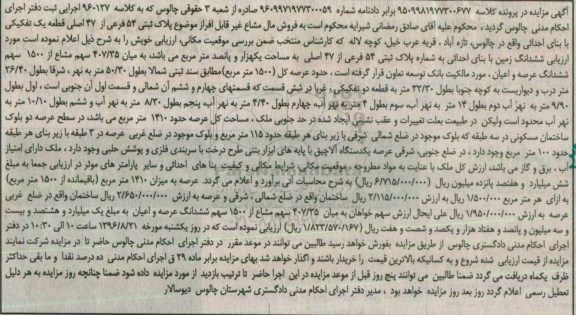 آگهی مزایده در پرونده کلاسه ۹۵۰۹۹۸۱۹۷۷۳۰۰۶۷۷ برابر دادنامه شماره ۹۶۰۹۹۷۱۹۷۷۳۰۰۰۵۹ صادره از شعبه ۳ حقوقی چالوس که به کلاسه ۹۶۰۱۲۷ اجرایی ثبت دفتر اجرای
احکام مدنی چالوس گردید ، محکوم علیه آقای صادق رمضانی شیرایه محکوم است به فروش مال مشاع غیر قابل افراز موضوع پلاک ثبتی ۵۴ فرعی از ۴۷ اصلی قطعه یک تفکیکی
با بنای احداثی واقع در چالوس، تازه آباد ، قریه عرب خیل، کوچه لاله که کارشناس منتخب ضمن بررسی موقعیت مکانی، ارزیابی خویش را به شرح ذیل اعلام نموده است مورد
ارزیابی ششدانگ زمین با بنای احداثی به شماره پلاک ثبتی ۵۴ فرعی از ۴۷ اصلی به مساحت یکهزار و پانصد متر مربع می باشد، به میان ۴۰۷/۳۵ سهم مشاع از ۱۵۰۰ سهم
ششدانگ عرصه و اعیان ، مورد مالکیت بانک توسعه تعاون قرار گرفته است ، حدود عرصه کل (۱۵۰۰ متر مربع) مطابق سند ثبتی شمالا بطول ۵۰/۳۰ متر به نهر ، شرقا بطول ۲۶/۴۰
متر درب و دیواریست به کوچه جنوبا بطول ۳۲/۳۰ متر به قطعه دو تفکیکی ، غربا در شش قسمت که قسمتهای چهارم و ششم آن شمالی و قسمت اول آن جنوبی است ، اول بطول
۹/۹۰ متر به نهر آب دوم بطول ۱۴ متر به نهر آب، سوم بطول ۴ متر به نهر آب، چهارم بطول ۴/۴۰ متر به نهر آب، پنجم بطول ۸/۳۰ متر به نهر آب و ششم بطول ۱۰/۱۰ متر به
نهر آب محدود است ولیکن در طبیعت بعلت تغییرات و عقب نشینی ایجاد شده در حد جنوبی ملک ، مساحت کل عرصه حدود ۱۴۱۰ متر می باشد، در سطح عرصه دو بلوک
ساختمان مسکونی در سه طبقه که بلوک موجود در ضلع شمالی شرقی با زیر بنای هر طبقه حدود ۱۱۵ متر مربع و بلوک موجود در ضلع غربی عرصه در ۳ طبقه با زیر بنای هر طبقه
حدود ۱۰۰ متر مربع وجود دارد ، در ضلع جنوبی، شرقی عرصه یکدستگاه آلاچیق با پایه های ابزار بتنی طرح درخت با سربندی فلزی و پوشش حلبی وجود دارد ، ملک دارای امتیاز
آب ، برق و گاز می باشد، ارزش کل ملک با عنایت به مواد مطروحه ، موقعیت مکانی شرایط مکانی و کیفیت بنا های احداثی و سایر پارامتر های موثر در ارزیابی جمعا به مبلغ
شش میلیارد و هفتصد پانزده میلیون ریال (۶/۷۱۵/۰۰۰/۰۰۰ ریال) به شرح محاسبات آتی برآورد و اعلام می گردد. عرصه به میزان ۱۴۱۰ متر مربع (باقیمانده از ۱۵۰۰ متر مربع)
به ازای هر متر مربع ۱/۵۰۰/۰۰۰ ریال به ارزش ۲/۱۱۵/۰۰۰/۰۰۰ ریال ساختمان واقع در ضلع شمالی ، شرقی و عرصه به ارزش ۲/۶۵۰/۰۰۰/۰۰۰ ریال ساختمان واقع در ضلع غربی
عرصه به ارزش ۱/۹۵۰/۰۰۰/۰۰۰ ریال علی ایحال ارزش سهم خواهان به میان ۴۰۷/۳۵ سهم مشاع از ۱۵۰۰ سهم ششدانگ عرصه و اعیان به مبلغ یک میلیارد و هشتصد و بیست
و سه میلیون و پانصد و هفتاد هزار و یکصد و شصت و هفت ریال (۱/۸۲۳/۵۷۰/۱۶۷ ریال) ارزیابی نموده است که در روز یکشنبه مورخه ۱۳۹۶/۸/۲۱ ساعت ۱۰ الی ۱۰:۳۰ در دفتر
اجرای احکام مدنی دادگستری چالوس از طریق مزایده بفروش خواهد رسید طالبین می توانند در موعد مقرر در دفتر اجرای احکام مدنی چالوس حاضر تا در مزایده شرکت نمایند
مزایده از قیمت ارزیابی شده شروع و به کسانیکه بالاترین قیمت را خریدار باشند و اگذار خواهد شد بهای مزایده برابر ماده ۲۹ ق اجرای احکام مدنی ده درصد نقدا و ما بقی حداکثر
ظرف یکماه دریافت می گردد ضمنا طالبین می توانند پنج روز قبل از موعد مزایده در این اجرا حاضر تا ترتیب بازدید از مورد مزایده داده شود ضمنا چنانچه روز مزایده به هر دلیل
تعطیل رسمی اعلام گردد روز بعد روز مزایده خواهد بود ، مدیر دفتر اجرای احکام مدنی دادگستری شهرستان چالوس دیوسالار